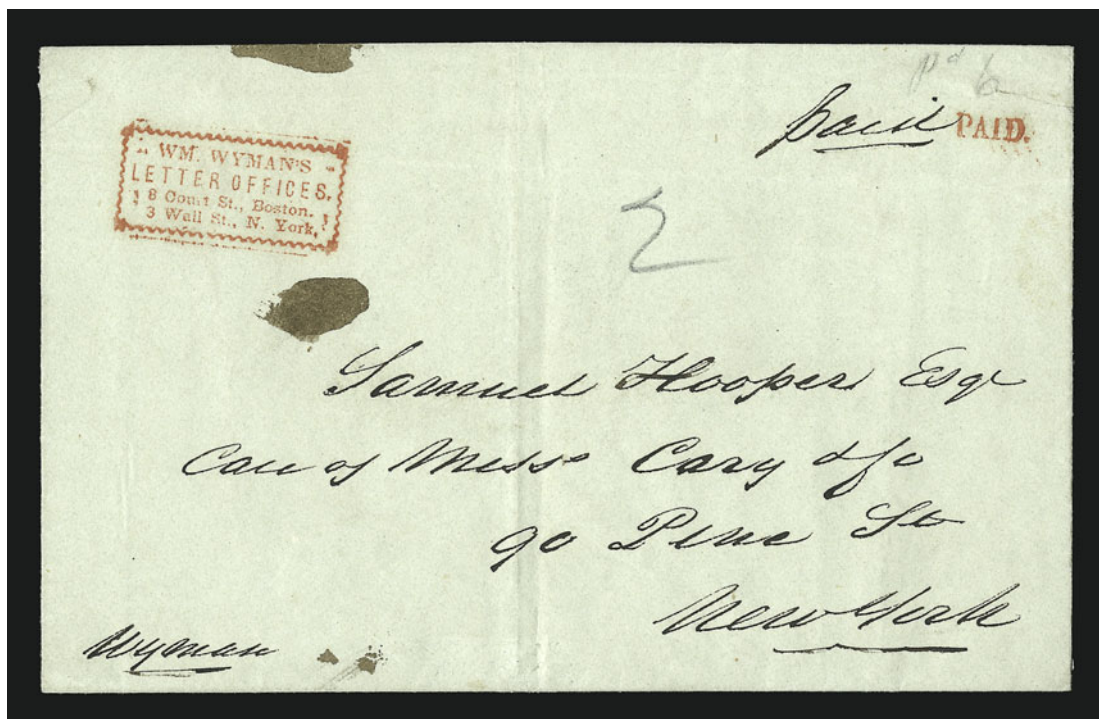 pd 6
Paid PAID.
WM. WYMAN'S
LETTER OFFICES,
8 Court St., Boston.
3 Wall St., N. York,
2
Samuel Hooper Esqr
Care of Messrs Cary & Co
90 Pine St
New York
Wyman